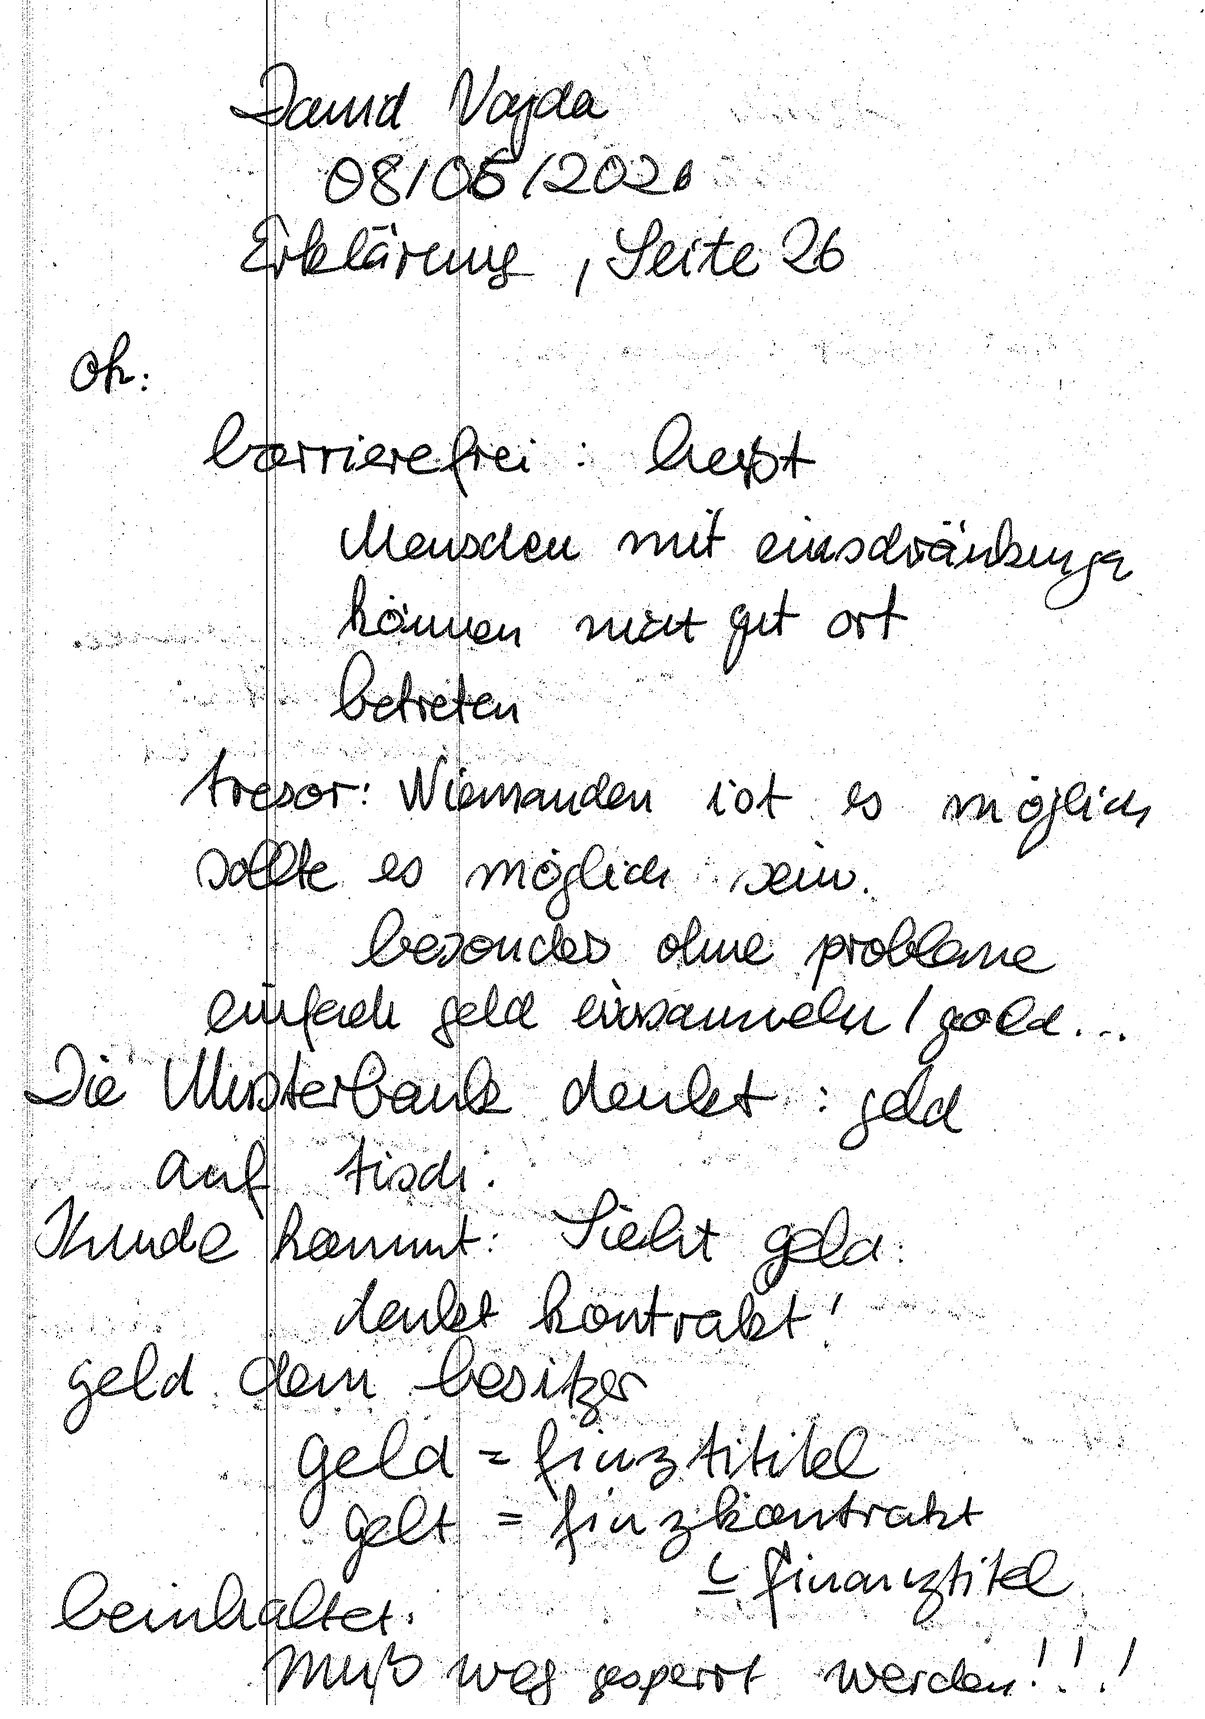 David Vajda
08/05/2026
Erklärung, Seite 26
oh:
barrierefrei : heißt
Menschen mit einschränkungen
können nicht gut ort
betreten
tresor: Niemanden ist es möglich
sollte es möglich sein.
besonders ohne probleme
einfach geld einsammeln / gold...
Die Musterbank denkt : geld
auf tisch:
Kunde kommt: Sieht geld:
denkt kontrakt!
geld dem besitzer
geld = finztitel
gelt = finzkontrakt
finanztitel
beinhaltet:
Muß weg gesperrt werden!!!